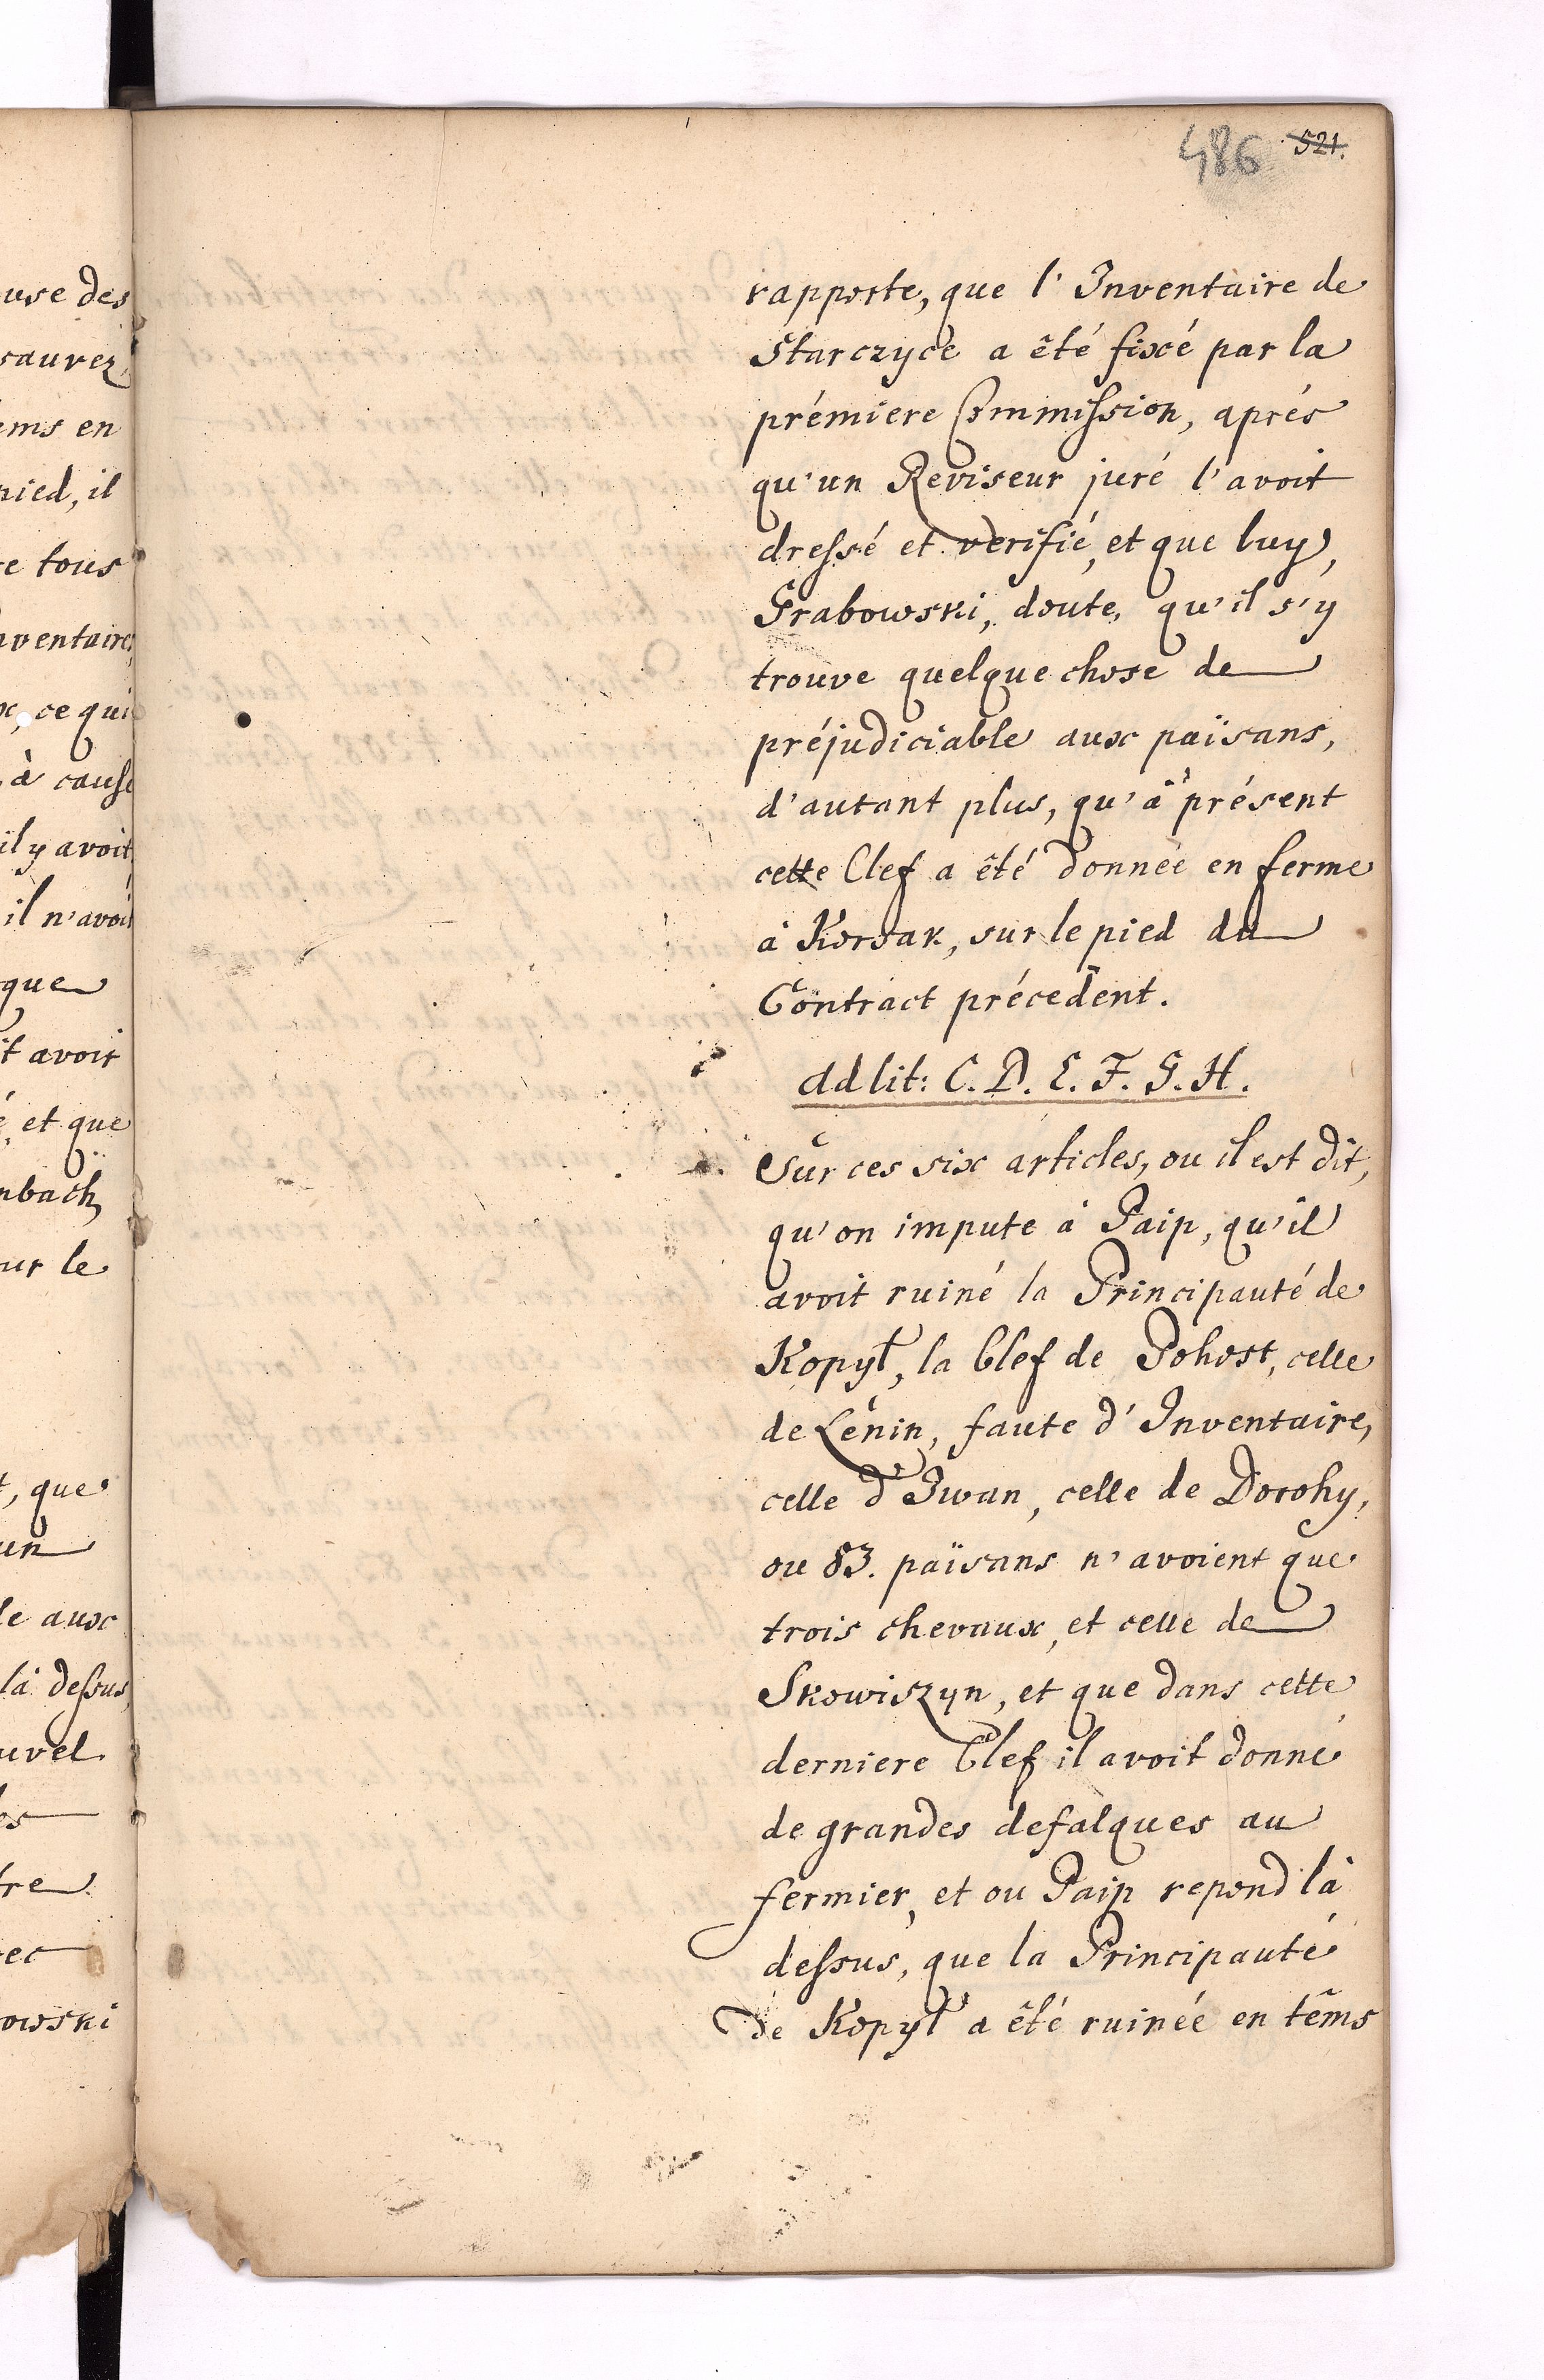 486 521.
rapporte, que l'Inventaire de
Starczyce a êté fixé par la
prémiere Commission, aprés
qu'un Reviseur juré l'avoit
dressé et verifié, et que luy,
Grabowski, doute, qu'il s'y
trouve quelque chose de
préjudiciable aux païsans,
d'autant plus, qu'à présent
cette Clef a êté donnée en ferme
à Korsak, sur le pied du
Contract précedent.
Ad lit: C. D. E. F. G. H.
Sur ces six articles, ou il est dit,
qu'on impute à Paip, qu'il
avoit ruiné la Principauté de
Kopył, la Clef de Pohost, celle
de Lenin, faute d'Inventaire,
celle d'Iwan, celle de Dorohy,
ou 83. païsans n'avoient que
trois chevaux, et celle de
Skowiszyn, et que dans cette
derniere Clef il avoit donné
de grandes defalques au
fermier, et ou Paip repond là
dessus, que la Principauté
de Kopył a êté ruinée en têms
use des
sauvez
ems en
pied, il
re tous
nventaire,
x, ce qui
à cause
il y avoit
il n'avoit
que
it avoit
é, et que
nbach,
ur le
t, que
un
le aux
là dessus,
uvel
es
tre
ec
owski